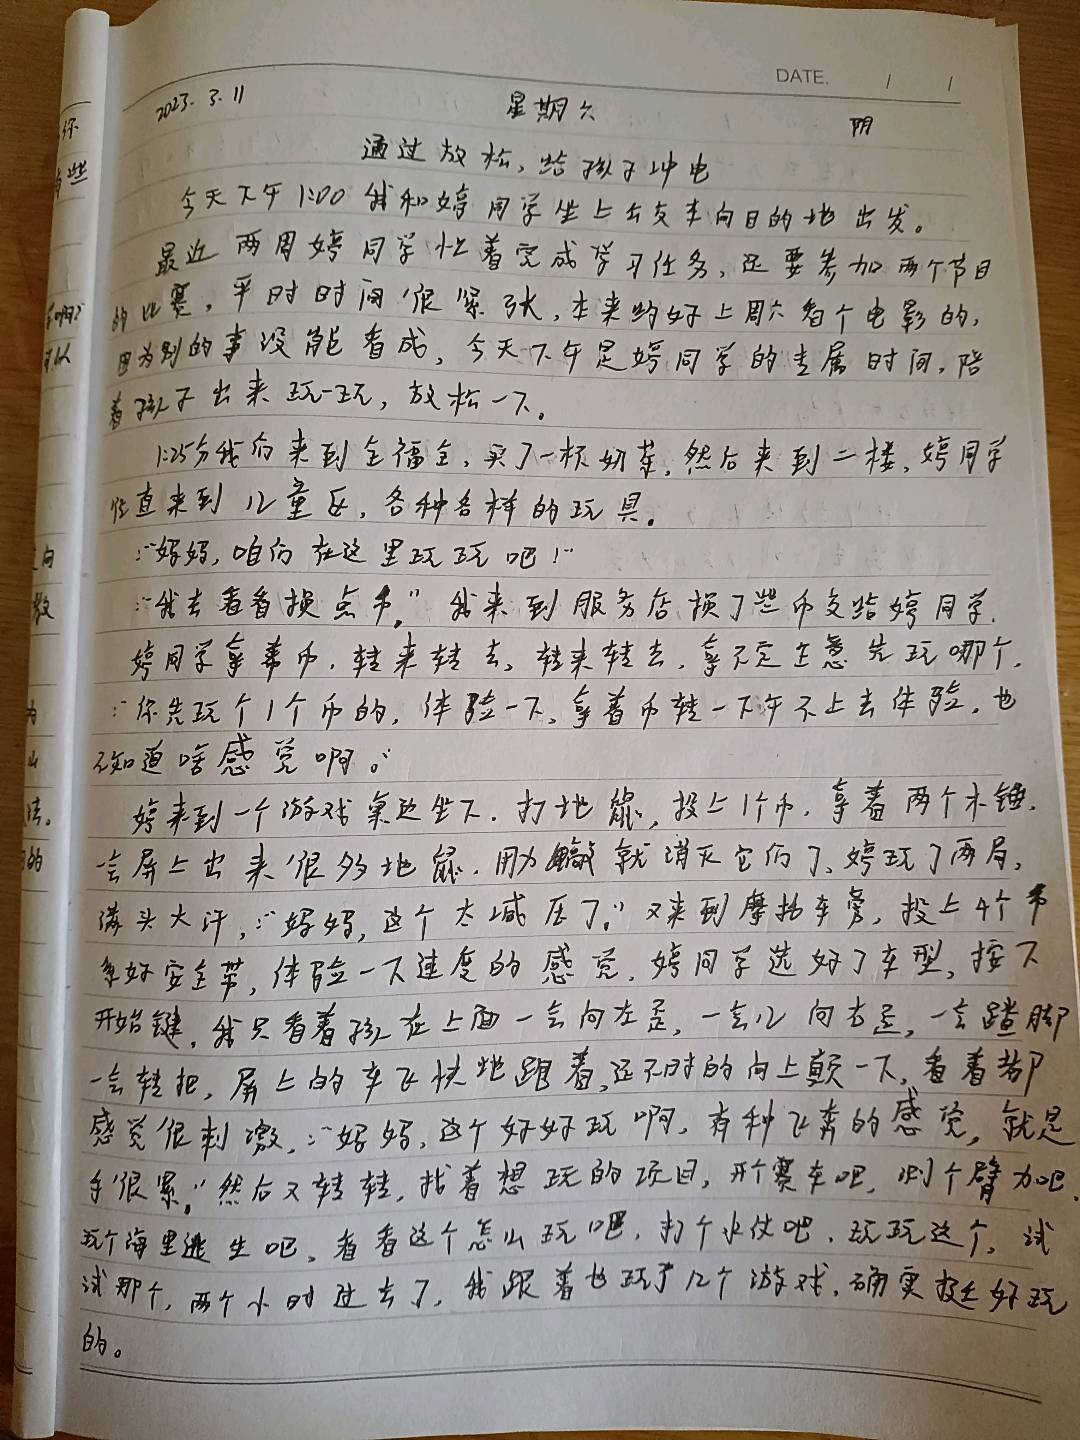 DATE. / /
2023.3.11 星期六 阴
通过放松,给孩子冲电
今天下午1:00我和婷同学坐上公交车向目的地出发。
最近两周婷同学忙着完成学习任务,还要参加两个节目
的比赛,平时时间很紧张,本来约好上周六看个电影的,
因为别的事没能看成,今天下午是婷同学的专属时间,陪
着孩子出来玩一玩,放松一下。
1:25分我们来到全福全,买了一杯奶茶,然后来到二楼,婷同学
径直来到儿童区,各种各样的玩具。
:“妈妈,咱们在这里玩玩吧!”
:“我去看看换点币。”我来到服务店换了些币交给婷同学.
婷同学拿着币,转来转去,转来转去,拿不定主意先玩哪个.
:“你先玩个1个币的,体验一下,拿着币转一下午不上去体验,也
不知道啥感觉啊。”
婷来到一个游戏桌边坐下,打地鼠,投上1个币,拿着两个木锤.
一会屏上出来很多地鼠,用力敲就消灭它们了,婷玩了两局,
满头大汗,:“妈妈,这个太减压了。”又来到摩托车旁,投上4个币
系好安全带,体验一下速度的感觉,婷同学选好了车型,按下
开始键,我只看着孩在上面一会向左歪,一会儿向右歪,一会蹬脚
一会转把,屏上的车飞快地跑着,还不时的向上颠一下,看着都
感觉很刺激,:“妈妈,这个好好玩啊,有种飞奔的感觉,就是
手很累。”然后又转转,找着想玩的项目,开个赛车吧,测个臂力吧,
玩个海里逃生吧,看看这个怎么玩吧,打个水仗吧,玩玩这个,试
试那个,两个小时过去了,我跟着也玩了几个游戏,确实挺好玩
的。
你
有些
啊?
可以
向
数
为
山
法。
的